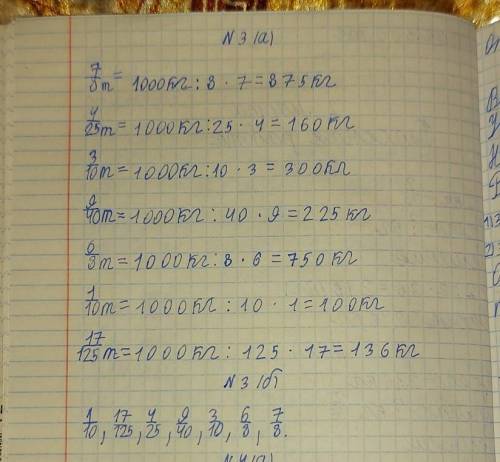 N 3 (а)
7/8 т = 1000кг : 8 · 7 = 875кг
4/25 т = 1000кг : 25 · 4 = 160кг
3/10 т = 1000кг : 10 · 3 = 300кг
9/40 т = 1000кг : 40 · 9 = 225кг
6/8 т = 1000кг : 8 · 6 = 750кг
1/10 т = 1000кг : 10 · 1 = 100кг
17/125 т = 1000кг : 125 · 17 = 136кг
N 3 (б)
1/10, 17/125, 4/25, 9/40, 3/10, 6/8, 7/8.